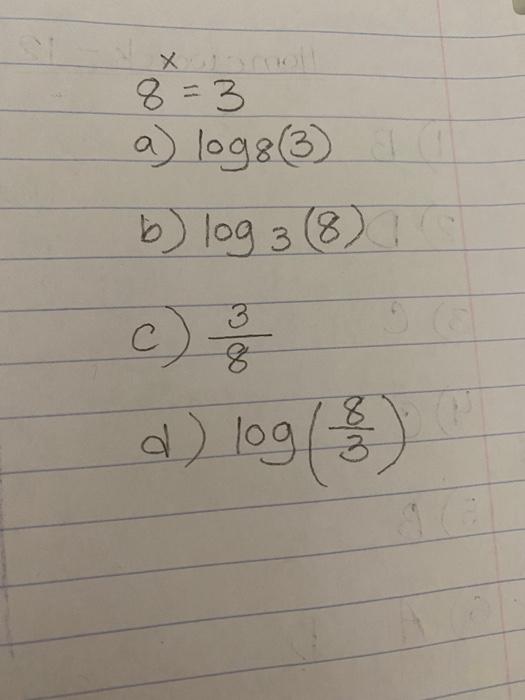 x
8 = 3
a) log8(3)
b) log 3 (8)
c) 3
8
d) log(8/3)